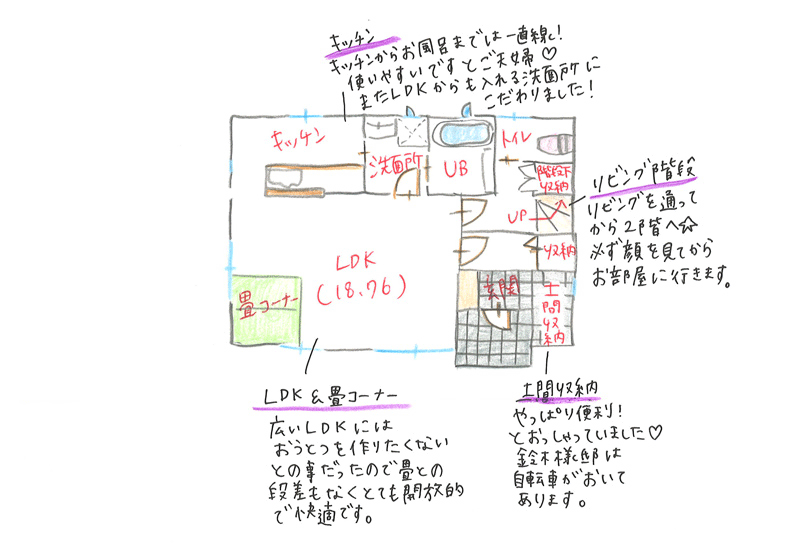 キッチン
キッチンからお風呂までは一直線!
使いやすいですとご夫婦♡
またLDKからも入れる洗面所に
こだわりました!
キッチン
洗面所
UB
トイレ
階段下
収納
UP
収納
LDK
(18.76)
畳コーナー
玄関
土間収納
リビング階段
リビングを通って
から2階へ☆
必ず顔を見てから
お部屋に行きます。
LDK&畳コーナー
広いLDKには
おうとつを作りたくない
との事だったので畳との
段差もなくとても開放的
で快適です。
土間収納
やっぱり便利!
とおっしゃっていました♡
鈴木様邸は
自転車がおいて
あります。